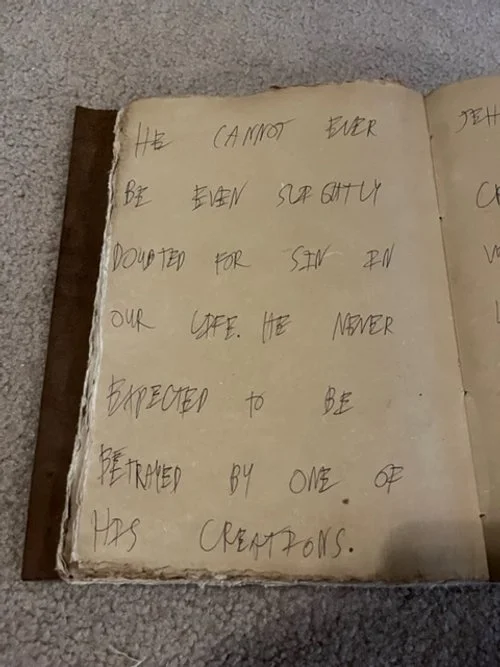 HE CANNOT EVER
BE EVEN SLIGHTLY
DOUBTED FOR SIN IN
OUR LIFE. HE NEVER
EXPECTED to BE
BETRAYED BY ONE OF
HIS CREATIONS.
JEH